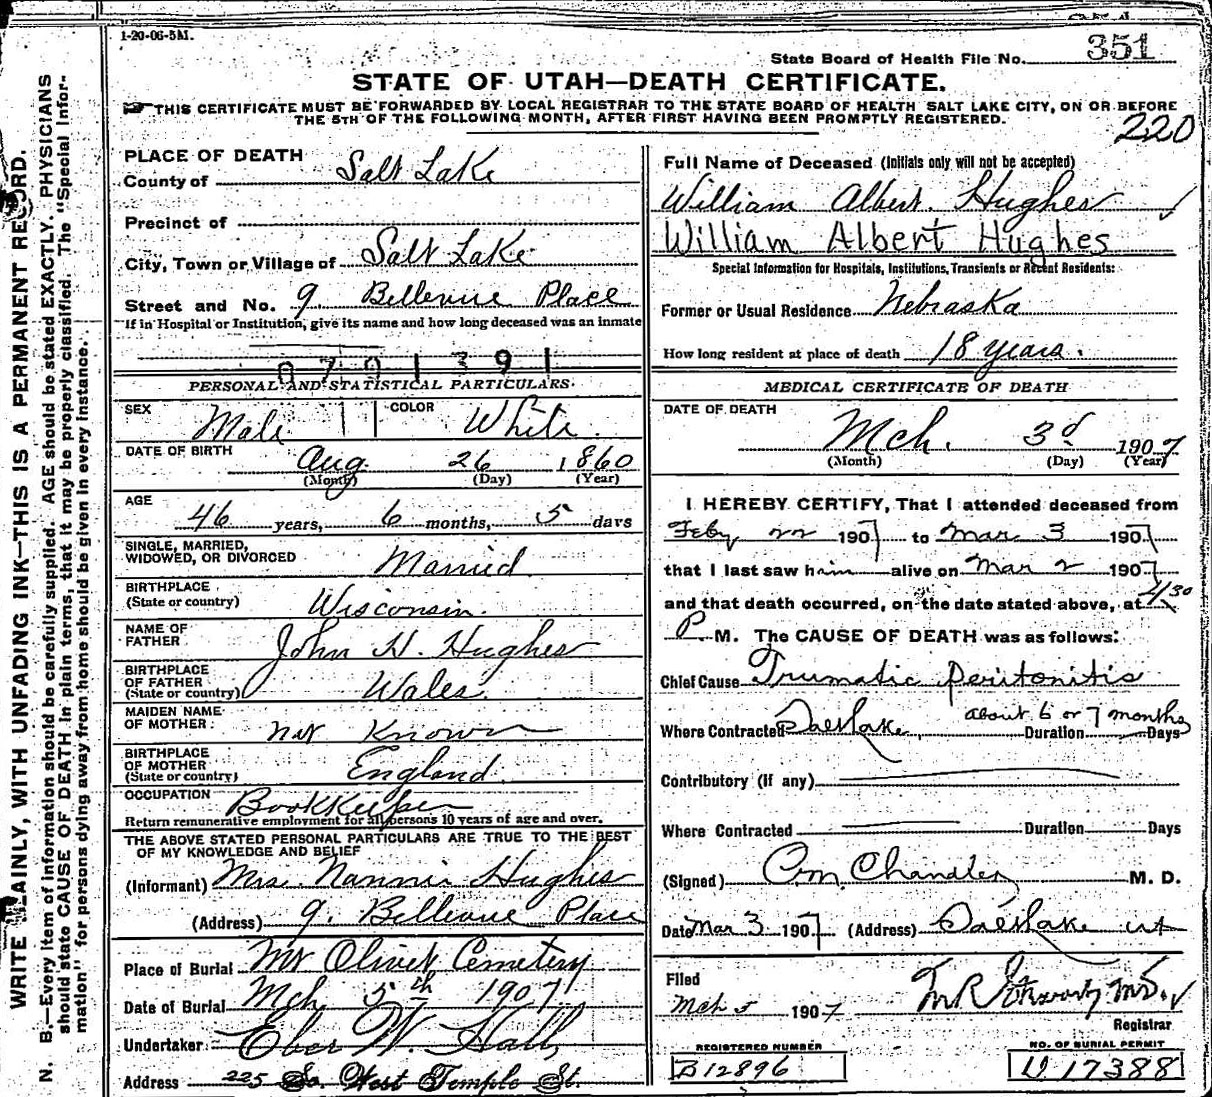 1-20-06-5M.
State Board of Health File No. 351
STATE OF UTAH—DEATH CERTIFICATE.
THIS CERTIFICATE MUST BE FORWARDED BY LOCAL REGISTRAR TO THE STATE BOARD OF HEALTH SALT LAKE CITY, ON OR BEFORE
THE 5TH OF THE FOLLOWING MONTH, AFTER FIRST HAVING BEEN PROMPTLY REGISTERED.
220
WRITE PLAINLY, WITH UNFADING INK—THIS IS A PERMANENT RECORD.
N. B.—Every item of information should be carefully supplied. AGE should be stated EXACTLY. PHYSICIANS
should state CAUSE OF DEATH in plain terms, that it may be properly classified. The "Special Infor-
mation" for persons dying away from home should be given in every instance.
PLACE OF DEATH
County of Salt Lake
Precinct of
City, Town or Village of Salt Lake
Street and No. 9 Bellevue Place
If in Hospital or Institution, give its name and how long deceased was an inmate
PERSONAL AND STATISTICAL PARTICULARS
SEX Male COLOR White
DATE OF BIRTH Aug. 26 1860
(Month) (Day) (Year)
AGE 46 years, 6 months, 5 days
SINGLE, MARRIED,
WIDOWED, OR DIVORCED Married
BIRTHPLACE
(State or country) Wisconsin.
NAME OF
FATHER John H. Hughes
BIRTHPLACE
OF FATHER
(State or country) Wales.
MAIDEN NAME
OF MOTHER not Known
BIRTHPLACE
OF MOTHER
(State or country) England.
OCCUPATION BookKeeper
Return remunerative employment for all persons 10 years of age and over.
THE ABOVE STATED PERSONAL PARTICULARS ARE TRUE TO THE BEST
OF MY KNOWLEDGE AND BELIEF
(Informant) Mrs. Nannie Hughes
(Address) 9. Bellevue Place
Place of Burial Mt Olivet Cemetery
Date of Burial Mch 5th 1907
Undertaker Eber W. Hall,
Address 225 So. West Temple St.
Full Name of Deceased (Initials only will not be accepted)
William Albert. Hughes
William Albert Hughes
Special Information for Hospitals, Institutions, Transients or Recent Residents:
Former or Usual Residence Nebraska
How long resident at place of death 18 years.
MEDICAL CERTIFICATE OF DEATH
DATE OF DEATH
Mch. 3d 1907
(Month) (Day) (Year)
I HEREBY CERTIFY, That I attended deceased from
Feby 22 1907 to Mar 3 1907
that I last saw him alive on Mar 2 1907
and that death occurred, on the date stated above, at 4 30
P M. The CAUSE OF DEATH was as follows:
Chief Cause Trumatic Peritonitis
Where Contracted Salt Lake Duration about 6 or 7 months Days
Contributory (If any)
Where Contracted Duration Days
(Signed) C.M. Chandler M. D.
Date Mar 3 1907 (Address) Salt Lake ut
Filed
Mch 5 1907
Registrar
REGISTERED NUMBER
B12896
NO. OF BURIAL PERMIT
U 17388